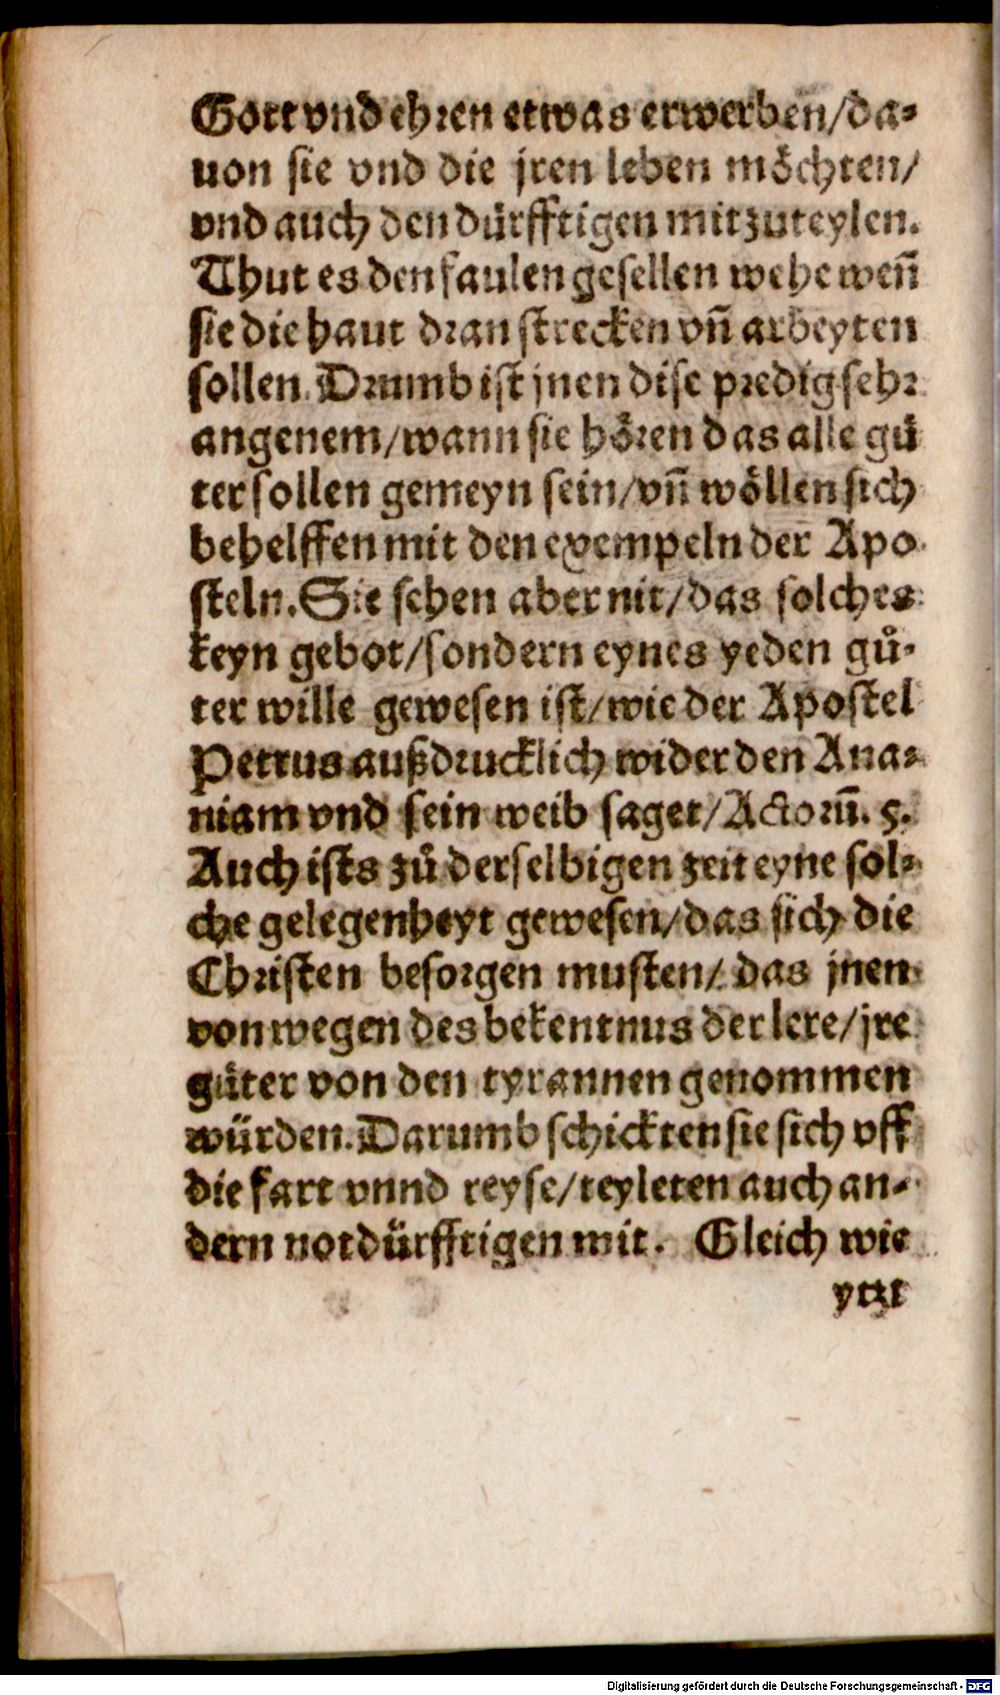 Gott vnd ehren etwas erwerben/da-
uon sie vnd die jren leben möchten/
vnd auch den dürfftigen mitzuteylen.
Thut es den faulen gesellen wehe weñ
sie die haut dran strecken vñ arbeyten
sollen. Drumb ist jnen dise predig sehr
angenem/wann sie hören das alle gü
ter sollen gemeyn sein/vñ wöllen sich
behelffen mit den exempeln der Apo
steln. Sie sehen aber nit/das solches
keyn gebot/sondern eynes yeden gů-
ter wille gewesen ist/wie der Apostel
Petrus außdrucklich wider den Ana-
niam vnd sein weib saget/Actorū. 5.
Auch ists zů derselbigen zeit eyne sol-
che gelegenheyt gewesen/das sich die
Christen besorgen musten/das jnen
von wegen des bekentnus der lere/jre
güter von den tyrannen genommen
würden. Darumb schickten sie sich vff
die fart vnnd reyse/teyleten auch an-
dern notdürfftigen mit. Gleich wie
ytzt
Digitalisierung gefördert durch die Deutsche Forschungsgemeinschaft - DFG